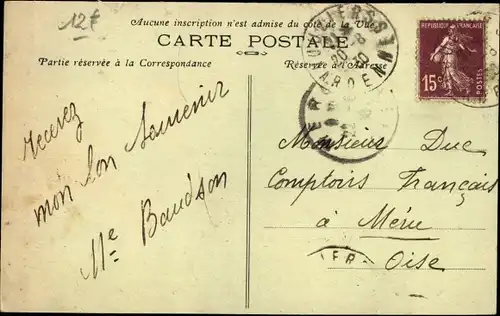 12€
Aucune inscription n'est admise du côté de la Vue
CARTE POSTALE
Partie réservée à la Correspondance
Réservée à l'Adresse
RÉPUBLIQUE FRANÇAISE
15c
POSTES
ARDENN
Recevez
mon bon Souvenir
Mle Baudson
Monsieur Duc
Comptoirs Français
à Méru
Oise